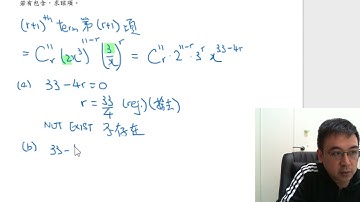 若有包含，求該項。
(r+1)th term 第(r+1)項
= C_r^11 (2x³)^(11-r) (3/x)^r = C_r^11 · 2^(11-r) · 3^r x^(33-4r)
(a) 33 - 4r = 0
r = 33/4 (rej.)(捨去)
NOT EXIST 不存在
(b) 33 -